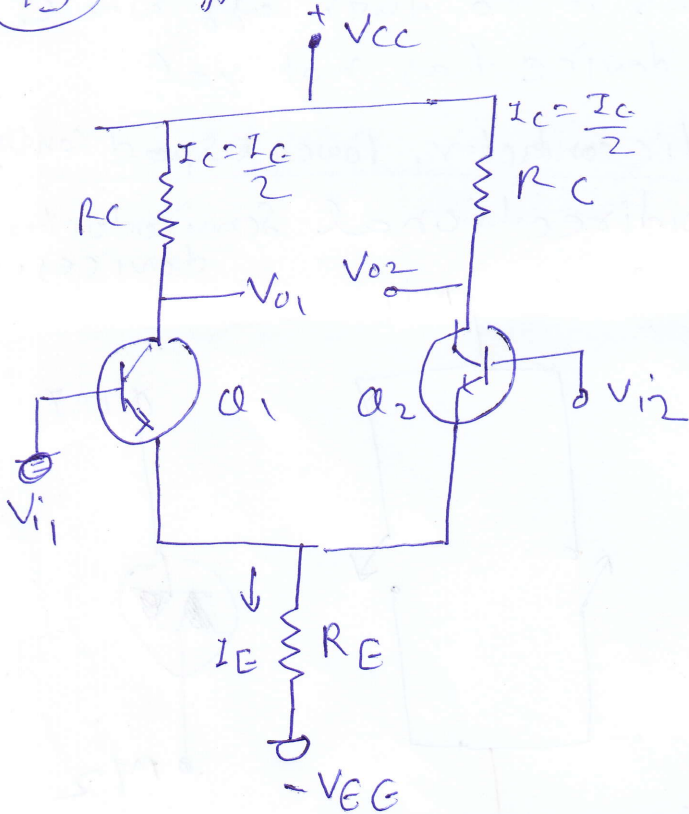 + VCC
IC = IC/2
IC = IE/2
RC
RC
VO1
VO2
Q1
Q2
Vi1
Vi2
IE
RE
- VEE